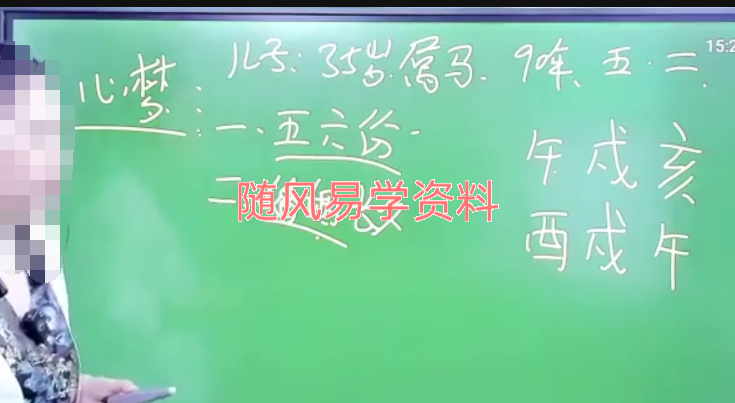 15:2
儿子: 35岁.属马. 9年、五.二.
心梦:
一、五六份.
二、
随风易学资料
午戌亥
酉戌午